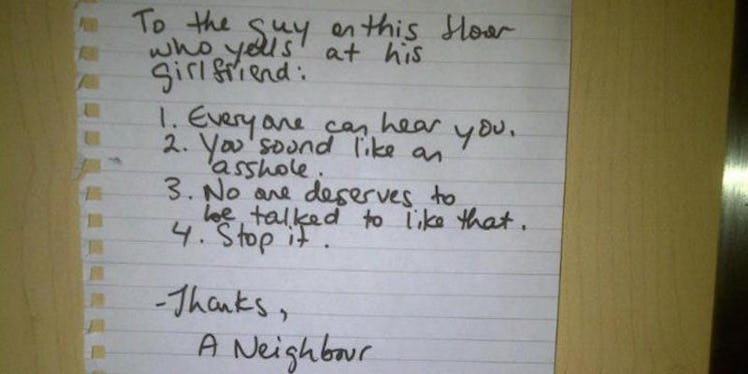 To the guy on this floor
who yells at his
girlfriend:
1. Everyone can hear you.
2. You sound like an
asshole.
3. No one deserves to
be talked to like that.
4. Stop it.
-Thanks,
A Neighbour